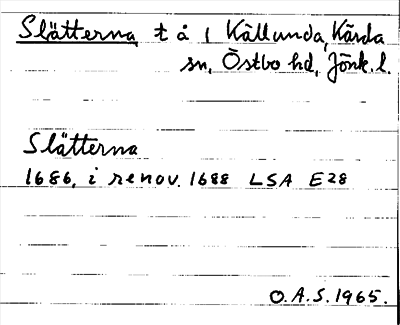 Slätterna, t å 1 Källunda, Kärda
sn, Östbo hd, Jönk. l.
Slätterna
1686, i renov. 1688 LSA E28
O.A.S. 1965.